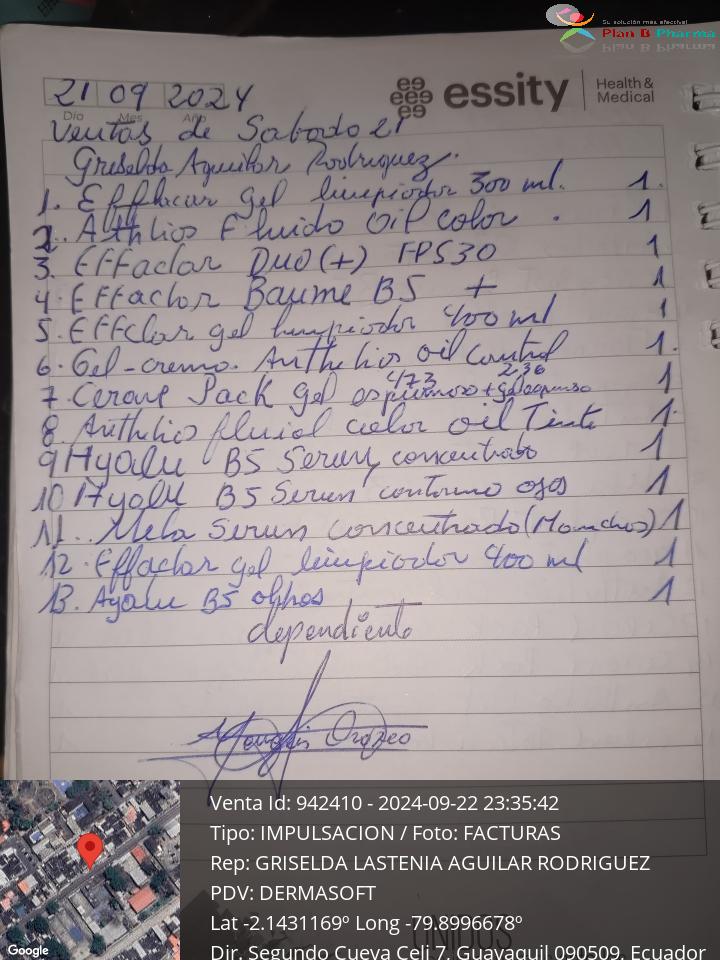 Su solución más efectiva!
Plan B Pharma
essity
Health &
Medical
21 09 2024
Día Mes Año
Ventas de Sabado 21
Griselda Aguilar Rodriguez.
1. Efflacar gel limpiador 300 ml. 1.
2.. Athlios Fluido oil color . 1
3. Effaclar Duo(+) FPS30 1
4. Effaclor Baume B5 + 1
5. Effclar gel limpiador 400 ml 1
6. Gel-crema. Anthelios oil control 1.
7. Cerave Pack gel espumoso 473 + gel espumoso 236 1
8. Anthelios fluid color oil Tinte 1.
9 Hyalu B5 Serum concentrado 1
10 Hyalu B5 Serum contorno ojos 1
11.. Mela Serum concentrado (Manchas) 1
12. Effaclar gel limpiador 400 ml 1
13. Ayalu B5 ohhos 1
dependiente
Orozco
Venta Id: 942410 - 2024-09-22 23:35:42
Tipo: IMPULSACION / Foto: FACTURAS
Rep: GRISELDA LASTENIA AGUILAR RODRIGUEZ
PDV: DERMASOFT
Lat -2.1431169º Long -79.8996678º
UNIDOS
Dir. Segundo Cueva Celi 7, Guayaquil 090509, Ecuador
Google